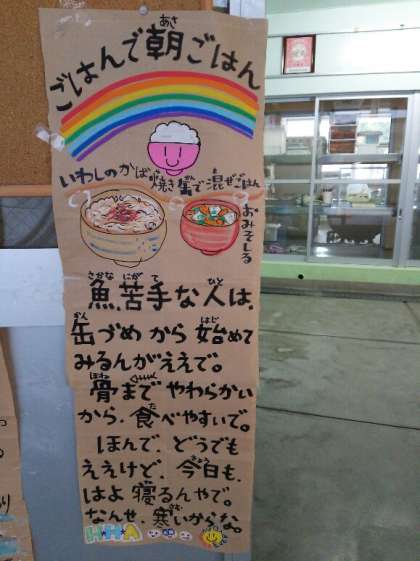 ごはんで朝ごはん
いわしのかば焼き缶で混ぜごはん
おみそしる
魚苦手な人は、
缶づめから始めて
みるんがええで。
骨まで やわらかい
から、食べやすいで。
ほんで、どうでも
ええけど、今日も、
はよ寝るんやで。
なんせ、寒いからな。
HHA